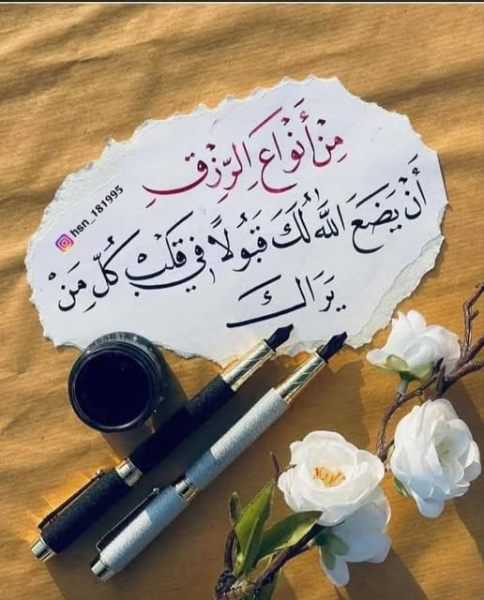 مِنْ أَنْوَاعِ الرِّزْقِ
أَنْ يَضَعَ اللَّهُ لَكَ قَبُولًا فِي قَلْبِ كُلِّ مَنْ
يَرَاكَ
hsn_181995